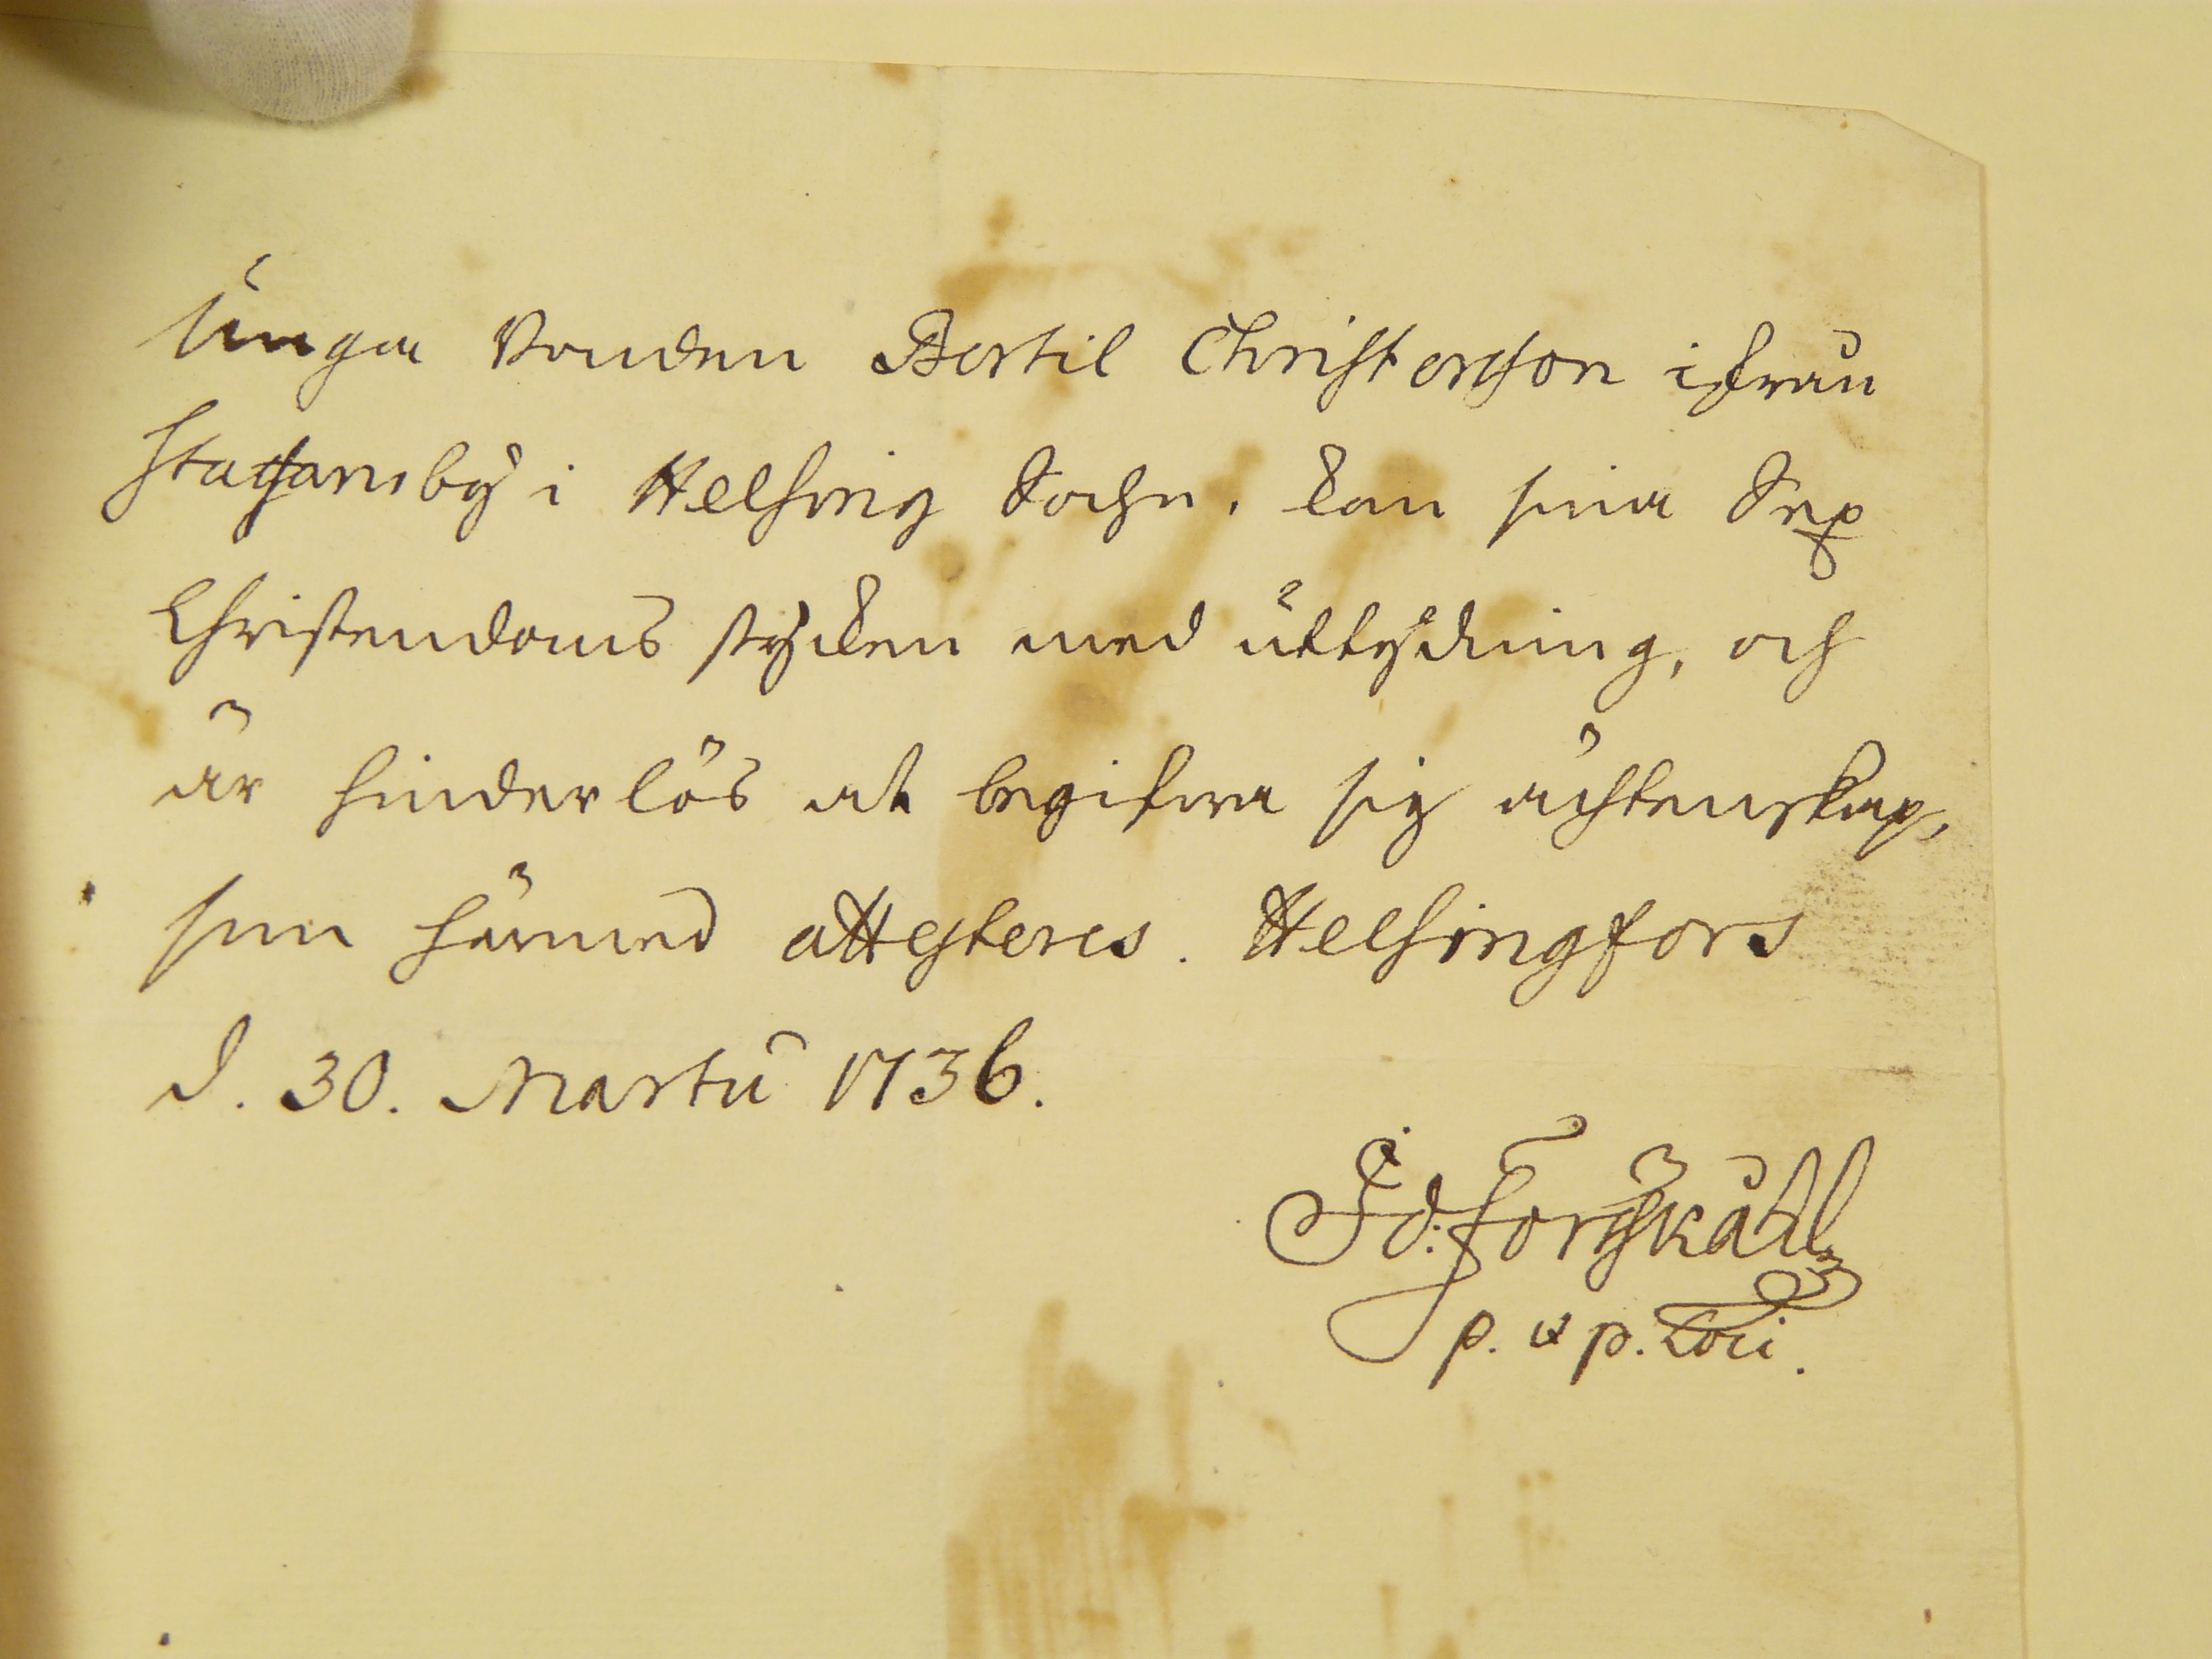 Unga Bonden Bertil Christersson ifrån
Staffansby i Helsing Sochn, kan sina Sex
Christendoms stycken med uttydning, och
är hinderlös at begifwa sig ächtenskap,
som härmed attesteres. Helsingfors
d. 30. Martii 1736.
Joh: Forsskåhl
p. & p. Loci.